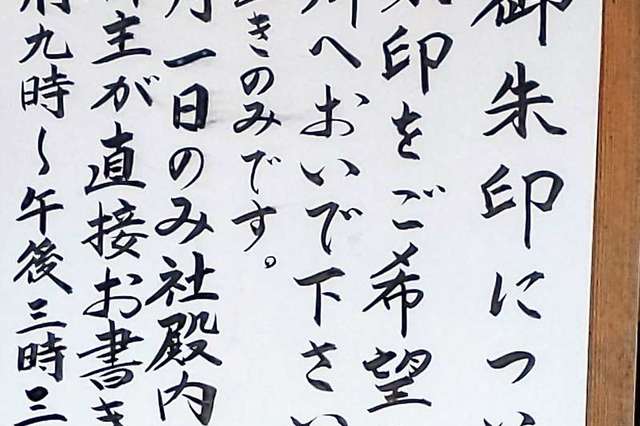 御朱印につい
朱印をご希望
所へおいで下さい
きのみです。
月一日のみ社殿内
主が直接お書き
前九時～午後三時三